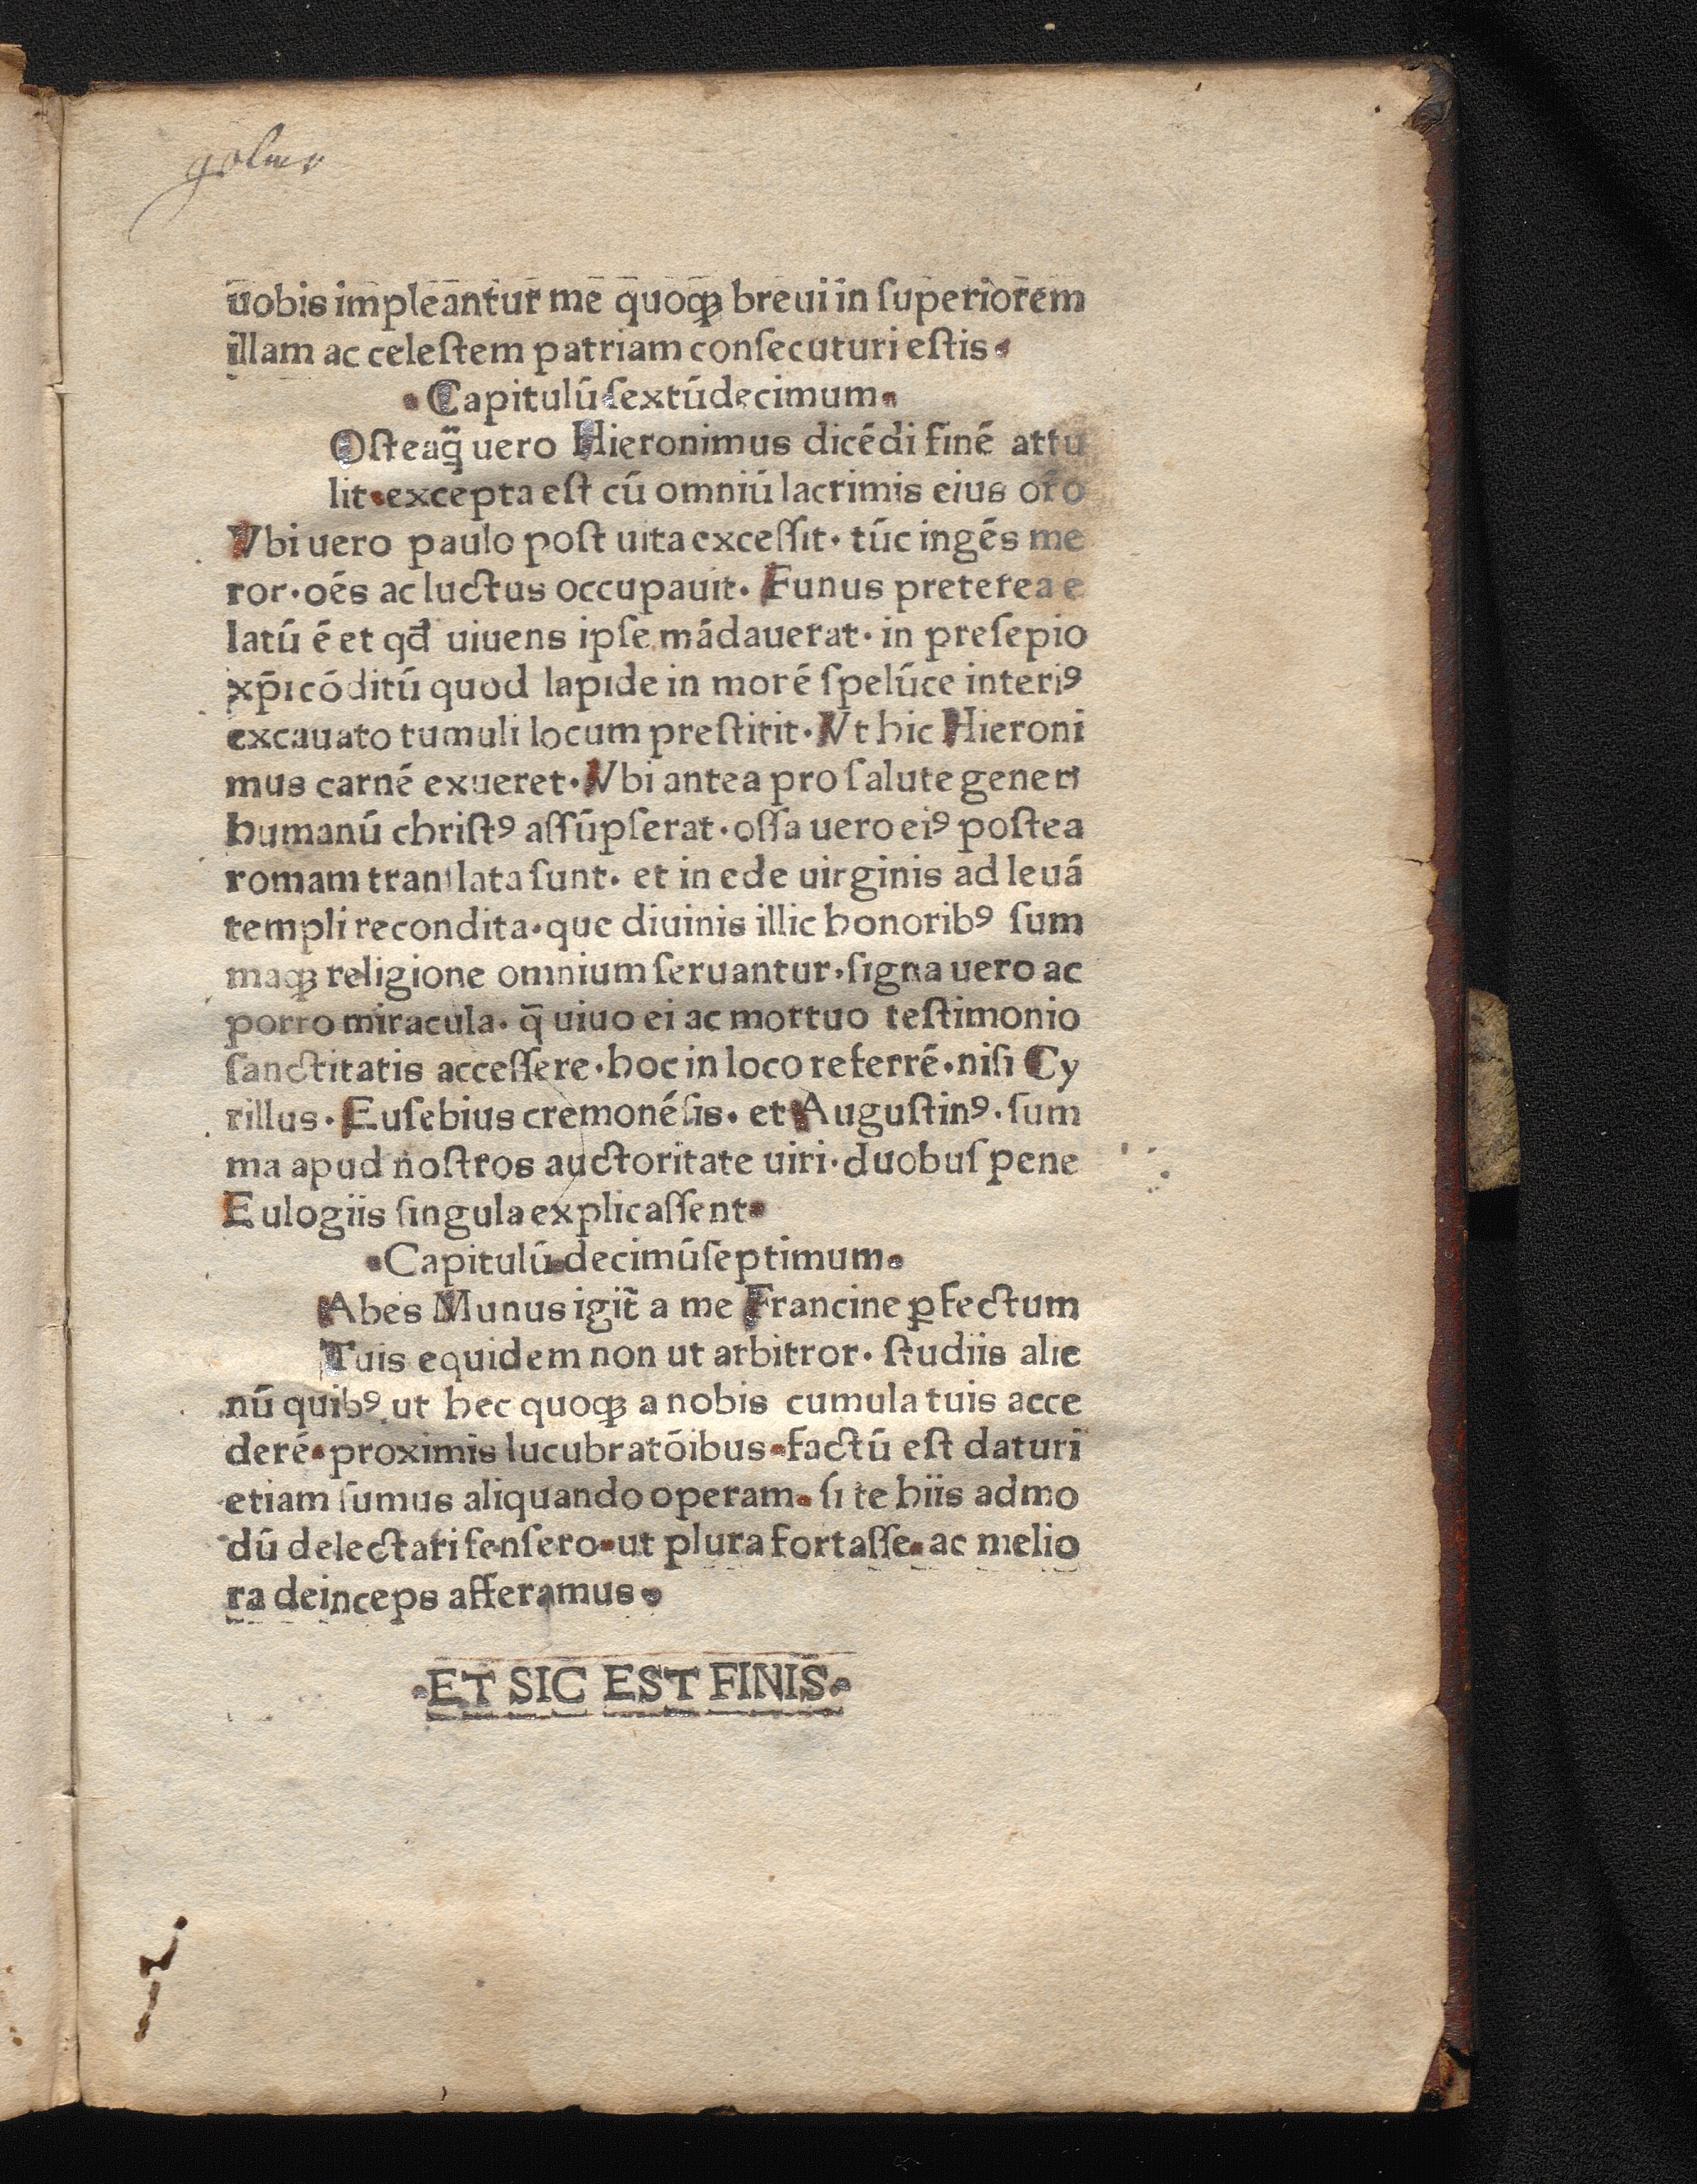 uobis impleantur me quoqꝫ breui in ſuperiorem
illam ac celeſtem patriam conſecuturi eſtis·
·Capitulū ſextūdecimum·
Oſteaq̄ uero Hieronimus dicēdi finē attu
lit·excepta eſt cū omniū lacrimis eius oŕo
Vbi uero paulo poſt uita exceſſit· tūc ingēs me
ror·oēs ac luctus occupauit· Funus preterea e
latū ē et qđ uiuens ipſe mādauerat· in preſepio
xp̄i cōditū quod lapide in morē ſpelūce interiꝰ
excauato tumuli locum preſtitit·Vt hic Hieroni
mus carnē exueret·Vbi antea pro ſalute generi
humanū chriſtꝰ aſſūpſerat·oſſa uero eiꝰ poſtea
romam tranſlata ſunt· et in ede uirginis ad leuā
templi recondita·que diuinis illic honoribꝰ ſum
maqꝫ religione omnium ſeruantur·ſigna uero ac
porro miracula· q̄ uiuo ei ac mortuo teſtimonio
ſanctitatis acceſſere·hoc in loco referrē·niſi Cy
rillus·Euſebius cremonēſis· et Auguſtinꝰ·ſum
ma apud noſtros auctoritate uiri·duobuſ pene
Eulogiis ſingula explicaſſent·
·Capitulū·decimūſeptimum·
Abes Munus igit̄ a me Francine ꝑfectum
Tuis equidem non ut arbitror· ſtudiis alie
nū quibꝰ ut hec quoqꝫ a nobis cumula tuis acce
derē·proximis lucubratōibus·factū eſt daturi
etiam ſumus aliquando operam· ſi te hiis admo
dū delectari ſenſero·ut plura fortaſſe·ac melio
ra deinceps afferamus·
·ET SIC EST FINIS·